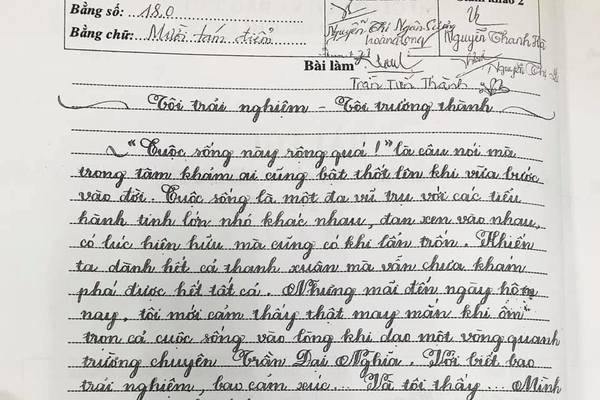 Bằng số: 18.0
Giám khảo 2
Bằng chữ: Mười tám điểm
Nguyễn Thị Ngân
Nguyễn Thanh Hà
Hoàng Long
Nguyễn Thị
Bài làm
Trần Tiến Thành
Tôi trải nghiệm - Tôi trưởng thành
"Cuộc sống này rộng quá!" là câu nói mà
trong tâm khảm ai cũng bật thốt lên khi vừa bước
vào đời. Cuộc sống là một đa vũ trụ với các tiểu
hành tinh lớn nhỏ khác nhau, đan xen vào nhau,
có lúc hiện hữu mà cũng có khi lẩn trốn. Khiến
ta dành hết cả thanh xuân mà vẫn chưa khám
phá được hết tất cả. Nhưng mãi đến ngày hôm
nay, tôi mới cảm thấy thật may mắn khi "ôm"
trọn cả cuộc sống vào lòng khi dạo một vòng quanh
trường chuyên Trần Đại Nghĩa. Với biết bao
trải nghiệm, bao cảm xúc... Và tôi thấy... Mình